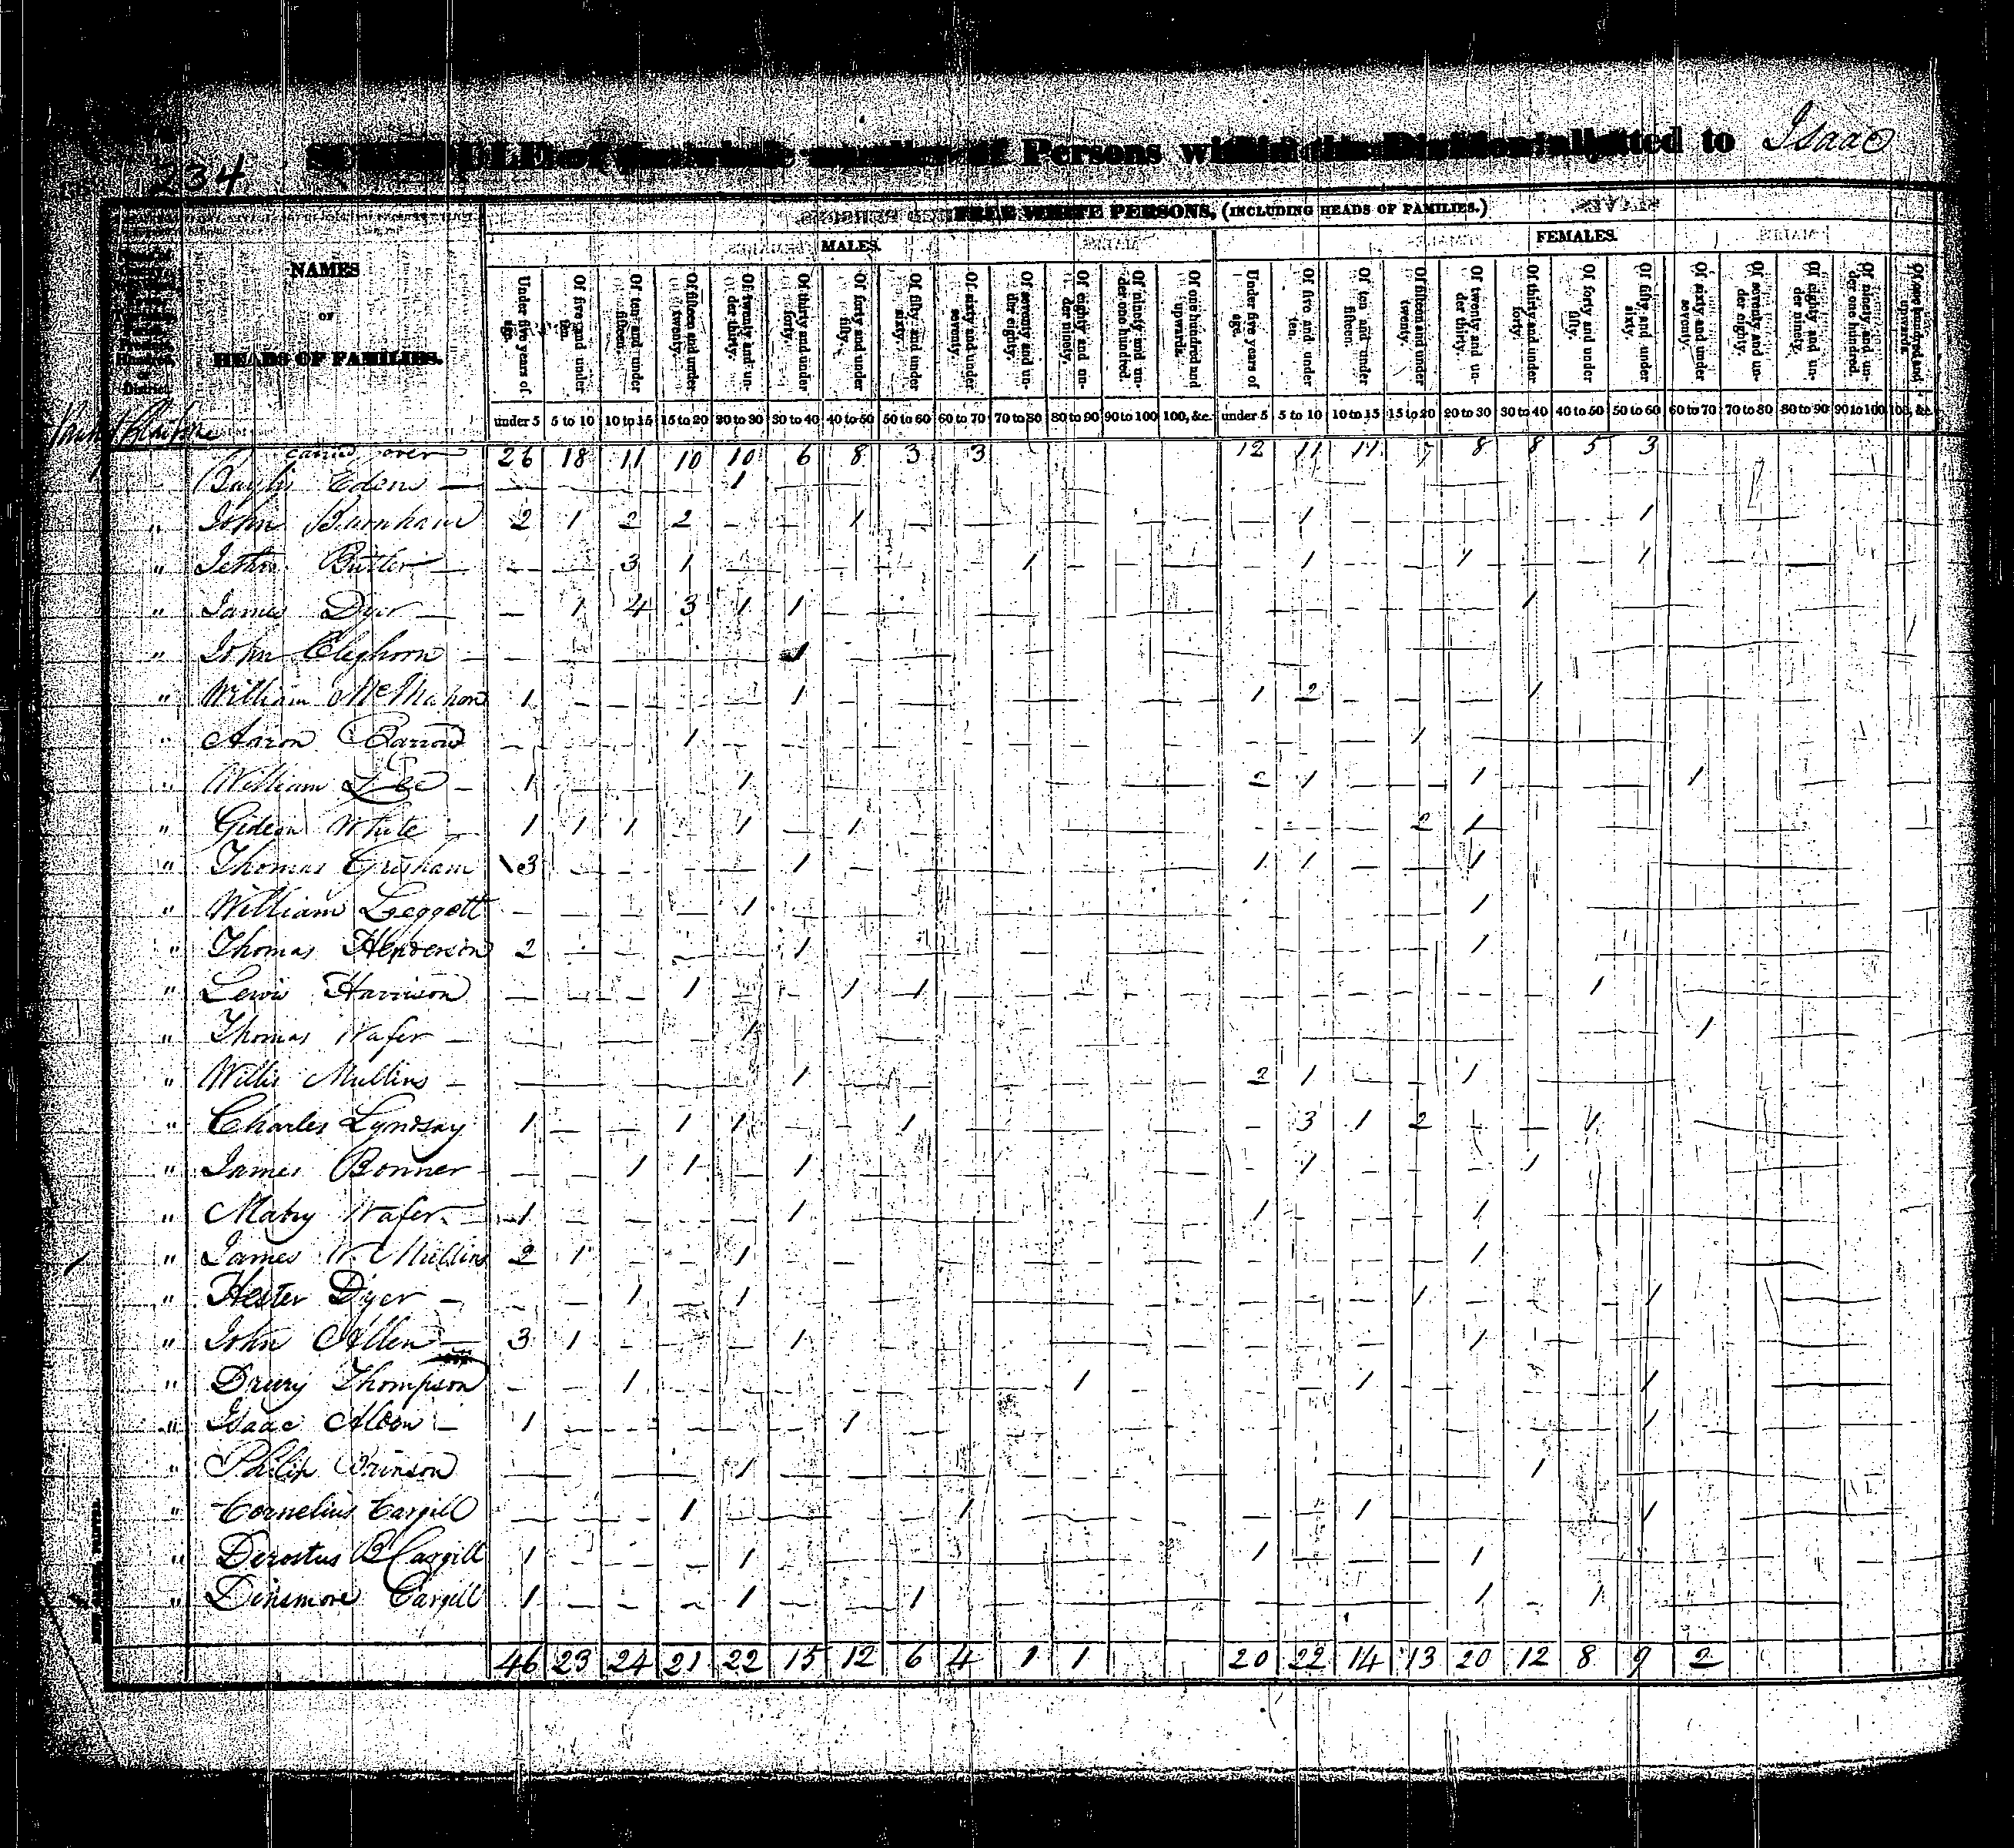 234 SCHEDULE of the whole number of Persons within the Division allotted to Isaac
FREE WHITE PERSONS, (INCLUDING HEADS OF FAMILIES.)
MALES. FEMALES.
NAMES
OF
HEADS OF FAMILIES.
Under five years of age. Of five and under ten. Of ten and under fifteen. Of fifteen and under twenty. Of twenty and under thirty. Of thirty and under forty. Of forty and under fifty. Of fifty and under sixty. Of sixty and under seventy. Of seventy and under eighty. Of eighty and under ninety. Of ninety and under one hundred. Of one hundred and upwards. Under five years of age. Of five and under ten. Of ten and under fifteen. Of fifteen and under twenty. Of twenty and under thirty. Of thirty and under forty. Of forty and under fifty. Of fifty and under sixty. Of sixty and under seventy. Of seventy and under eighty. Of eighty and under ninety. Of ninety and under one hundred. Of one hundred and upwards.
under 5 5 to 10 10 to 15 15 to 20 20 to 30 30 to 40 40 to 50 50 to 60 60 to 70 70 to 80 80 to 90 90 to 100 100, &c. under 5 5 to 10 10 to 15 15 to 20 20 to 30 30 to 40 40 to 50 50 to 60 60 to 70 70 to 80 80 to 90 90 to 100 100, &c.
Claiborne
carrid over 26 18 11 10 10 6 8 3 3 12 11 11 7 8 8 5 3
Edens 1
" John Barnham 2 1 2 2 1 1 1
" Jethro Butler 3 1 1 1 1 1
" James Dyer 1 4 3 1 1 1
" John Cleghorn 1
" William McMahon 1 1 1 2 1
" Aaron 1 1
" William Lee 1 1 2 1 1 1
" Gideon White 1 1 1 1 1 2 1
" Thomas Grisham 3 1 1 1 1
" William Leggett 1 1
" Thomas Henderson 2 1 1
" Lewis Harrison 1 1 1 1
" Thomas Wafer 1 1
" Willis Mullins 1 2 1 1
" Charles Lyndsay 1 1 1 1 3 1 2 1
" James Bonner 1 1 1 1 1
" Wafer 1 1 1 1
" James W Mullins 2 1 1 1
" Hester Dyer 1 1 1 1
" John Allen 3 1 1 1
" Drury Thompson 1 1 1 1
" Isaac 1 1 1
" Philip 1 1
" Cornelius Cargill 1 1 1 1
" Derostus B Cargill 1 1 1 1
" Dinsmore Cargill 1 1 1 1 1
46 23 24 21 22 15 12 6 4 1 1 20 22 14 13 20 12 8 9 2